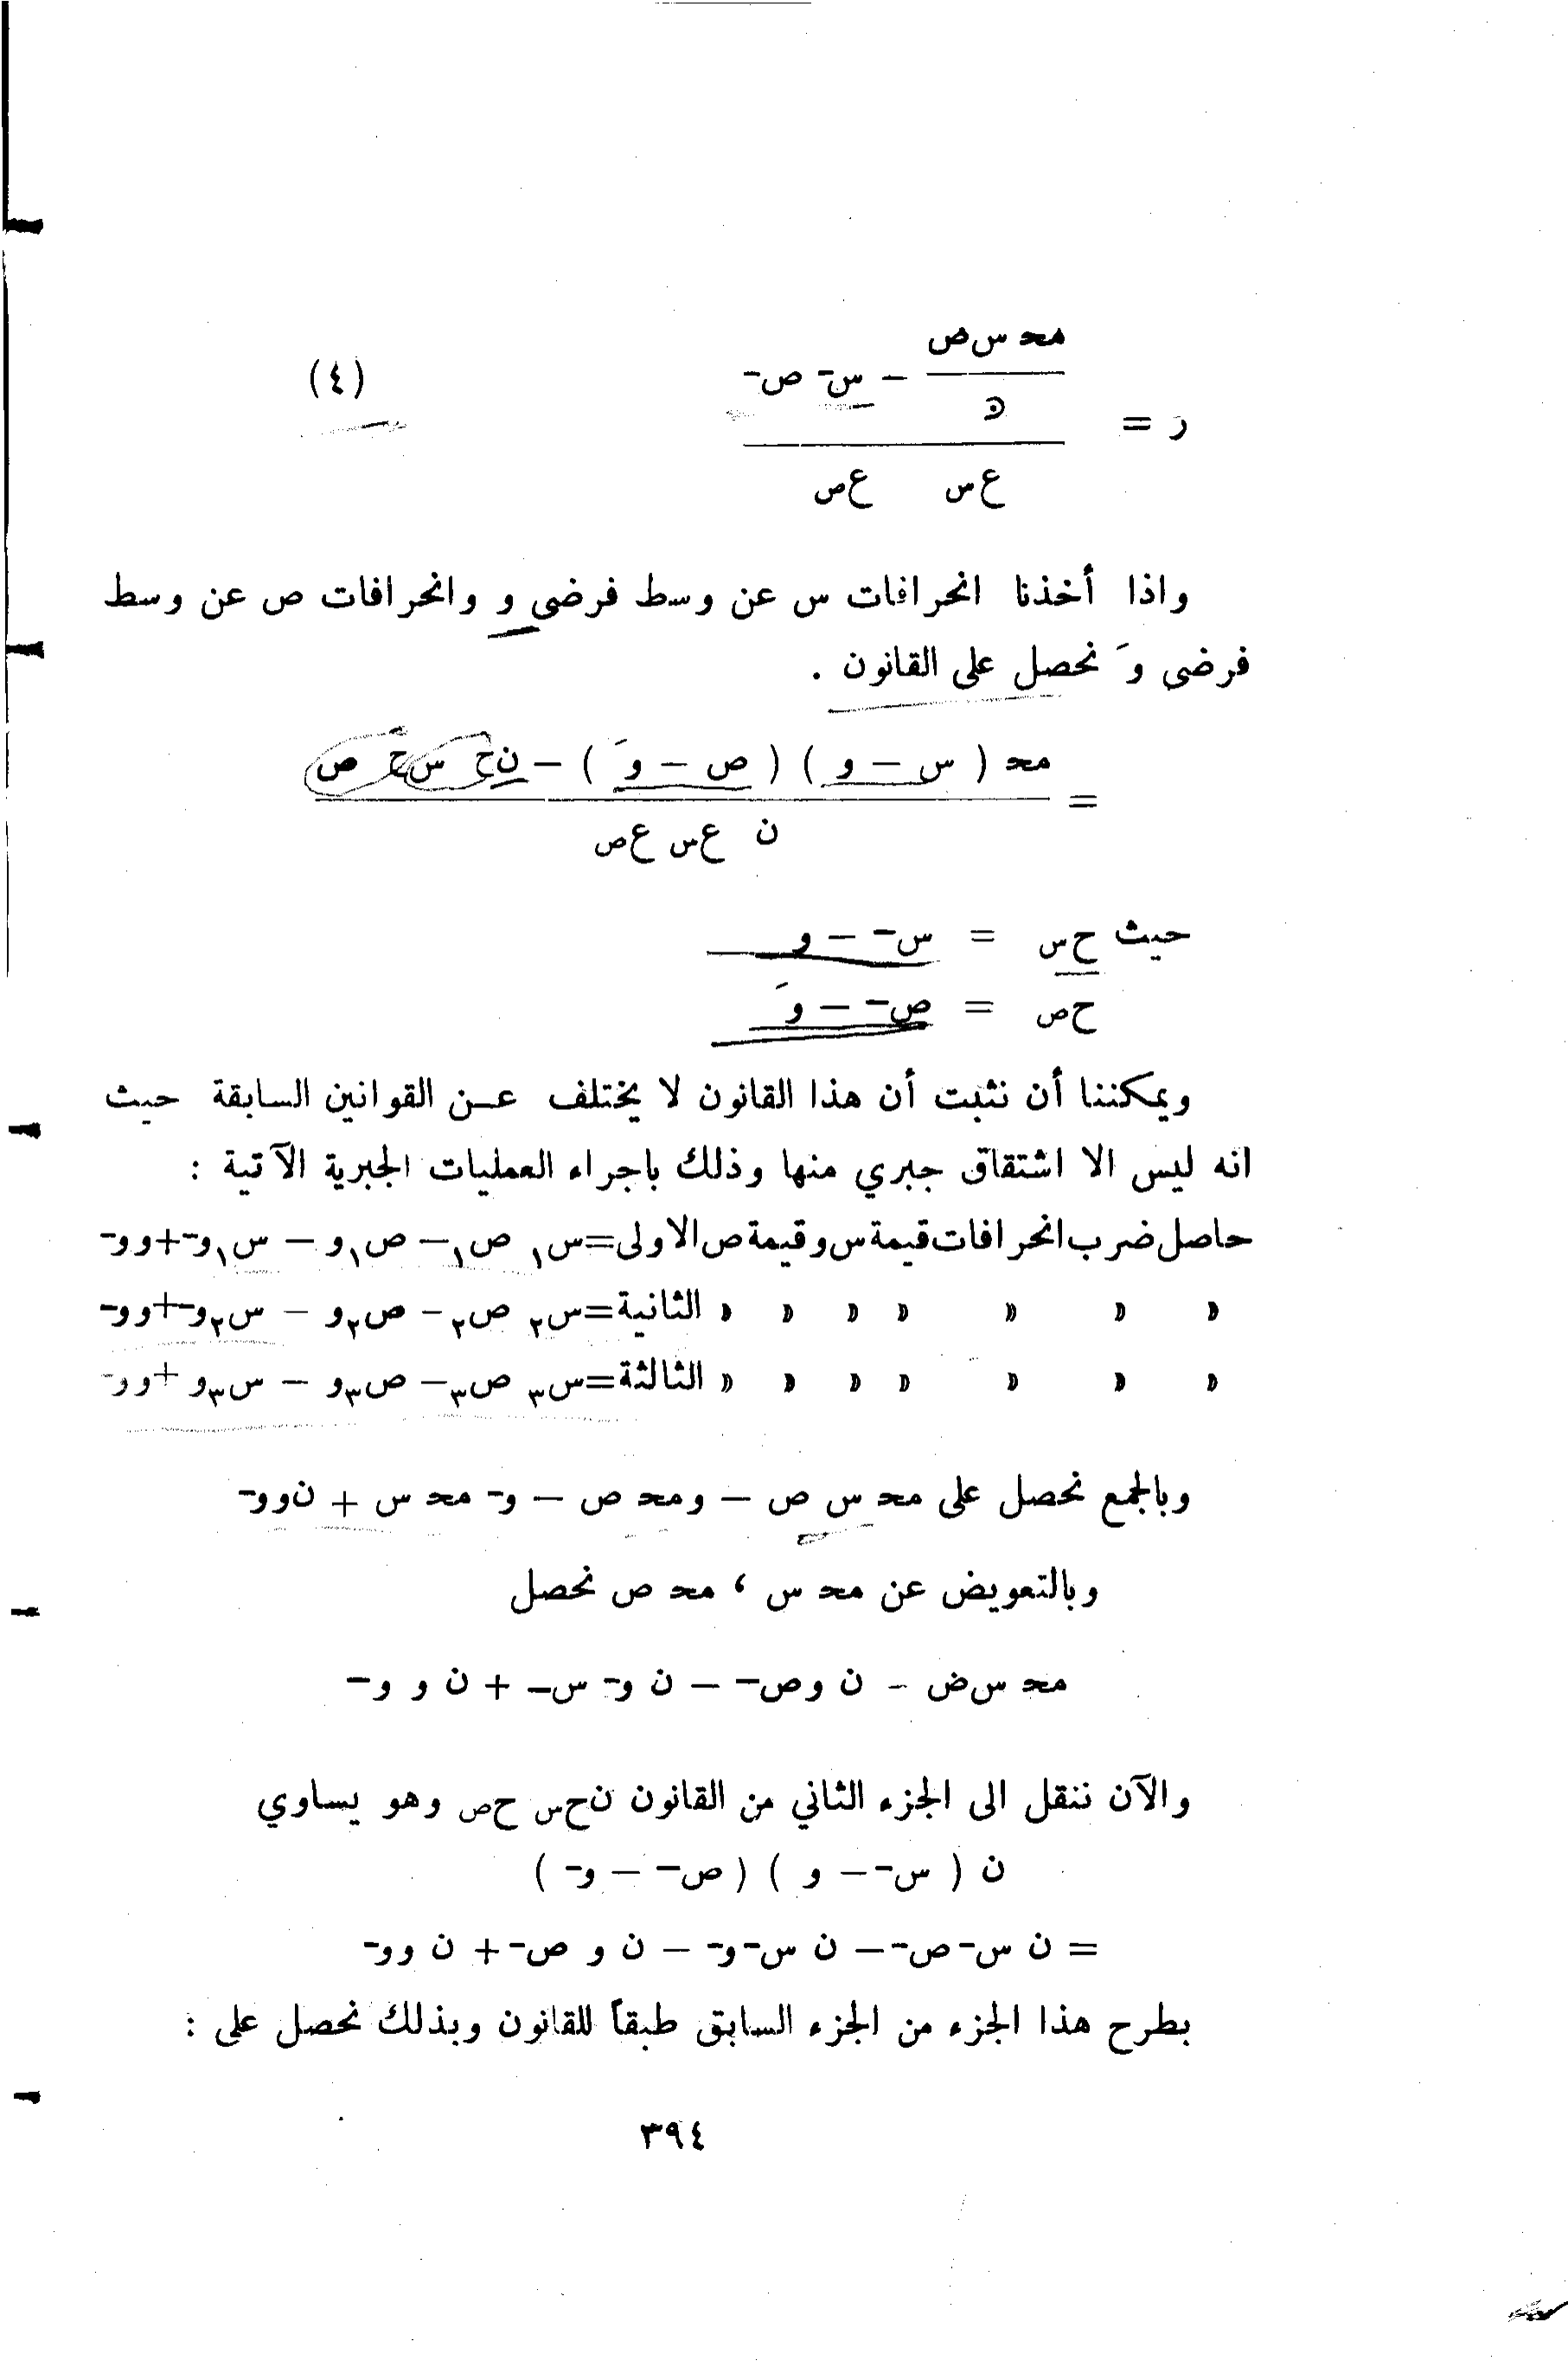 محـ س ص
ـــــــ - س- ص- (٤)
ن
ر = ـــــــــــــــــ
ع س ع ص
واذا أخذنا انحرافات س عن وسط فرضى و وانحرافات ص عن وسط
فرضى وَ نحصل على القانون .
= محـ ( س - و ) ( ص - وَ ) - ن ح س ح ص
ن ع س ع ص
حيث ح س = س- - و
ح ص = ص- - وَ
ويمكننا أن نثبت أن هذا القانون لا يختلف عـن القوانين السابقة حيث
انه ليس الا اشتقاق جبري منها وذلك باجراء العمليات الجبرية الآتية :
حاصل ضرب انحرافات قيمة س وقيمة ص الاولى = س١ ص١ - ص١ و - س١ و- + و و-
» » » » » » » الثانية = س٢ ص٢ - ص٢ و - س٢ و- + و و-
» » » » » » » الثالثة = س٣ ص٣ - ص٣ و - س٣ و + و و-
وبالجمع نحصل على محـ س ص - و محـ ص - و- محـ س + ن و و-
وبالتعويض عن محـ س ، محـ ص نحصل
محـ س ض - ن و ص- - ن و- س- + ن و و-
والآن ننقل الى الجزء الثاني من القانون ن ح س ح ص وهو يساوي
ن ( س- - و ) ( ص- - و- )
= ن س- ص- - ن س- و- - ن و ص- + ن و و-
بطرح هذا الجزء من الجزء السابق طبقاً للقانون وبذلك نحصل على :
٣٩٤